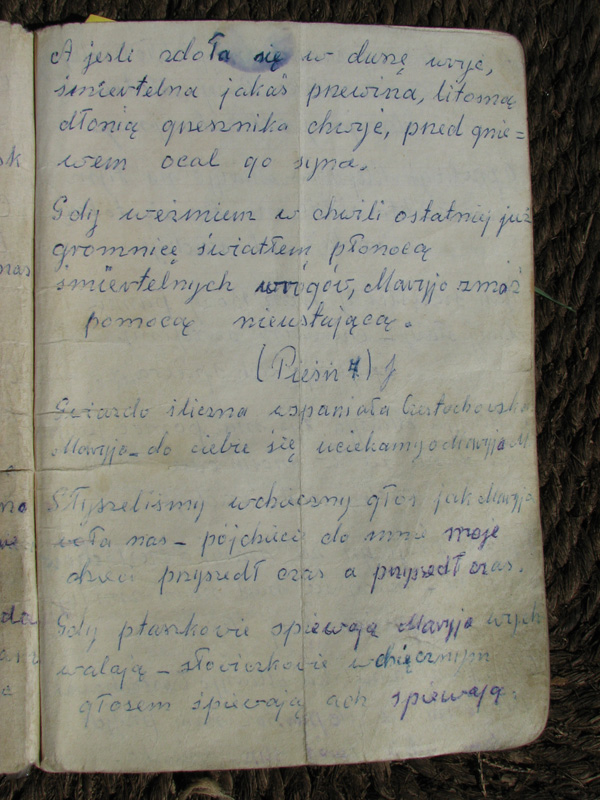 A jeśli zdoła się w duszę wryje,
śmiertelna jakaś przewina, litosną
dłonią grzesznika chwyć, przed gnie=
wem ocal go syna.
Gdy weźmiem w chwili ostatniej już
gromnicę światłem płonącą
śmiertelnych wrogów, Maryjo zmóż
pomocą nieustającą.
(Pieśń 7)
Gwiazdo śliczna wspaniała Częstochowska
Maryjo_do ciebie się uciekamy o Maryjo M
Słyszeliśmy wdzięczny głos jak Maryja
woła nas_ pójdzcie do mnie moje
dzieci przyszedł czas a przyszedł czas.
Gdy ptaszkowie śpiewają Maryję wych
walają _ słowiczkowie wdzięcznym
głosem śpiewają ach śpiewają.